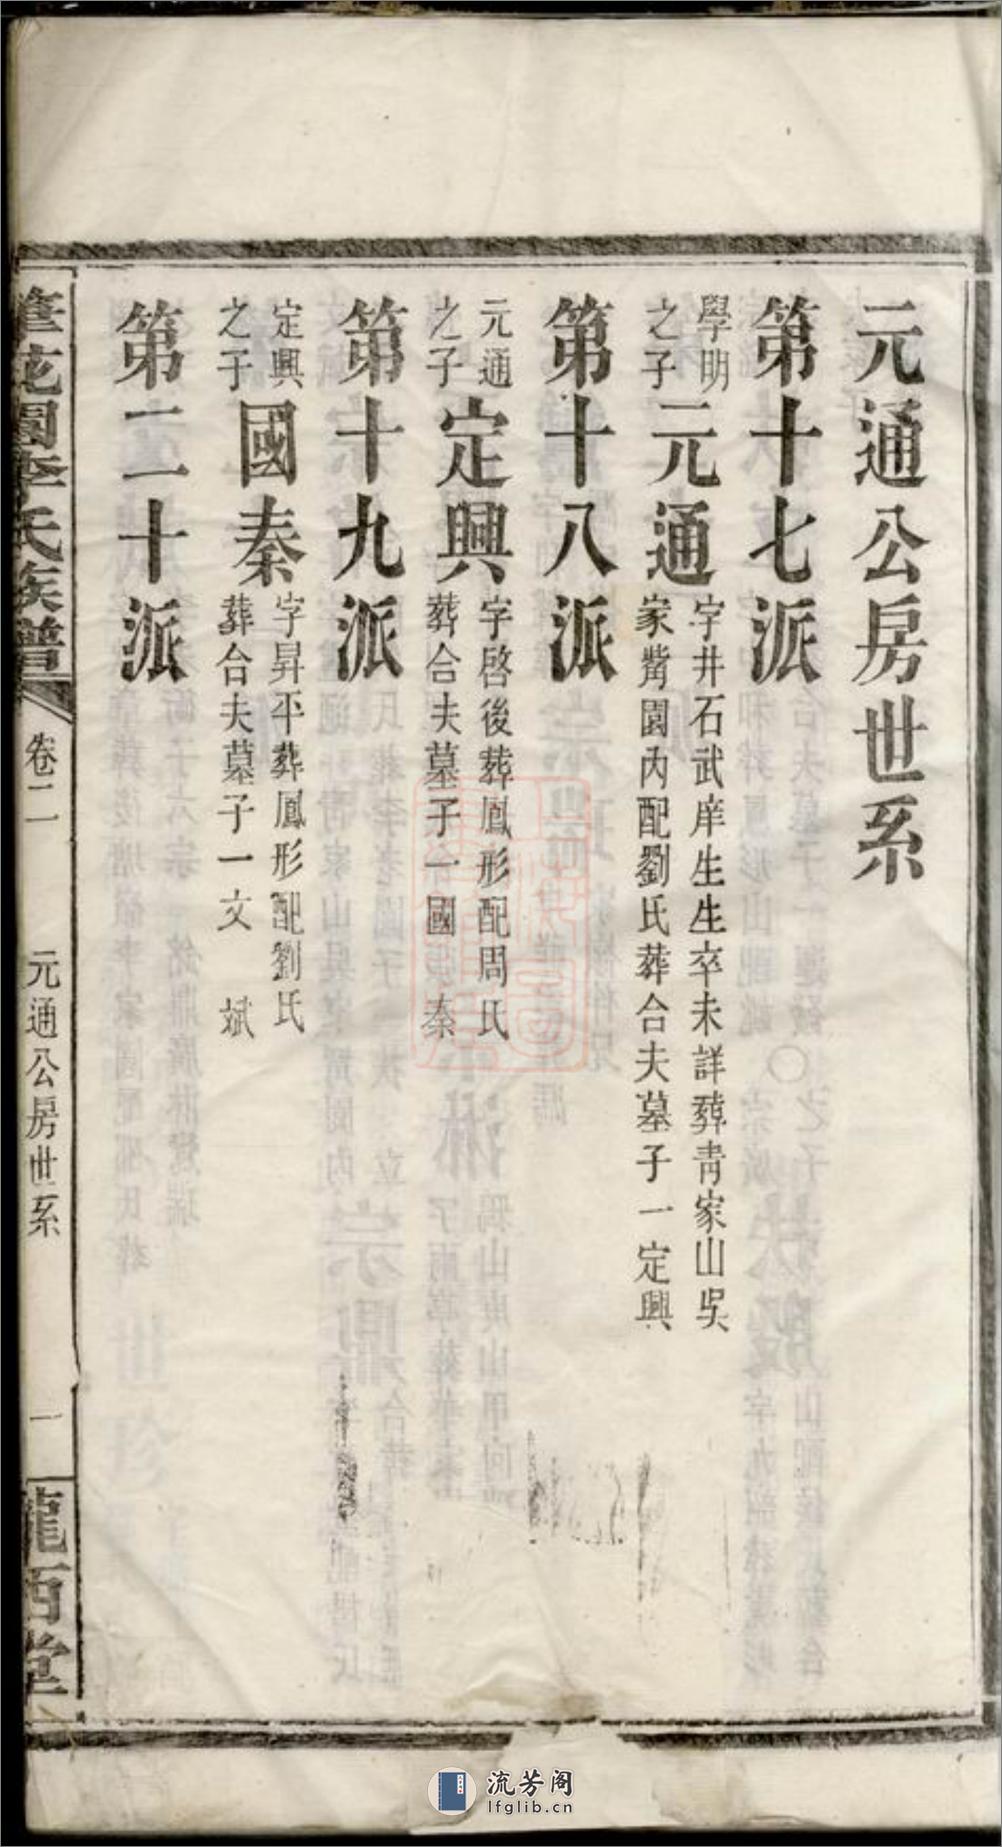 元通公房世系
第十七派
學明
之子
元通
字井石武庠生生卒未詳葬青家山吳
家嘴園內配劉氏葬合夫墓子一定興
第十八派
元通
之子
定興
字啓後葬鳳形配周氏
葬合夫墓子一國秦
第十九派
定興
之子
國秦
字昇平葬鳳形配劉氏
葬合夫墓子一文斌
第二十派
筆花園李氏族譜
卷二
元通公房世系
一
隴西堂
流芳阁
lfglib.cn